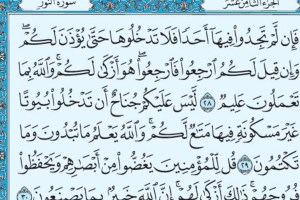 سورة النور الجزء الثامن عشر
فَإِن لَّمْ تَجِدُوا۟ فِيهَآ أَحَدًا فَلَا تَدْخُلُوهَا حَتَّىٰ يُؤْذَنَ لَكُمْ ۖ
وَإِن قِيلَ لَكُمُ ٱرْجِعُوا۟ فَٱرْجِعُوا۟ ۖ هُوَ أَزْكَىٰ لَكُمْ ۚ وَٱللَّهُ بِمَا
تَعْمَلُونَ عَلِيمٌ ٢٨ لَّيْسَ عَلَيْكُمْ جُنَاحٌ أَن تَدْخُلُوا۟ بُيُوتًا
غَيْرَ مَسْكُونَةٍ فِيهَا مَتَـٰعٌ لَّكُمْ ۚ وَٱللَّهُ يَعْلَمُ مَا تُبْدُونَ وَمَا
تَكْتُمُونَ ٢٩ قُل لِّلْمُؤْمِنِينَ يَغُضُّوا۟ مِنْ أَبْصَـٰرِهِمْ وَيَحْفَظُوا۟
فُرُوجَهُمْ ۚ ذَٰلِكَ أَزْكَىٰ لَهُمْ ۗ إِنَّ ٱللَّهَ خَبِيرٌۢ بِمَا يَصْنَعُونَ ٣٠